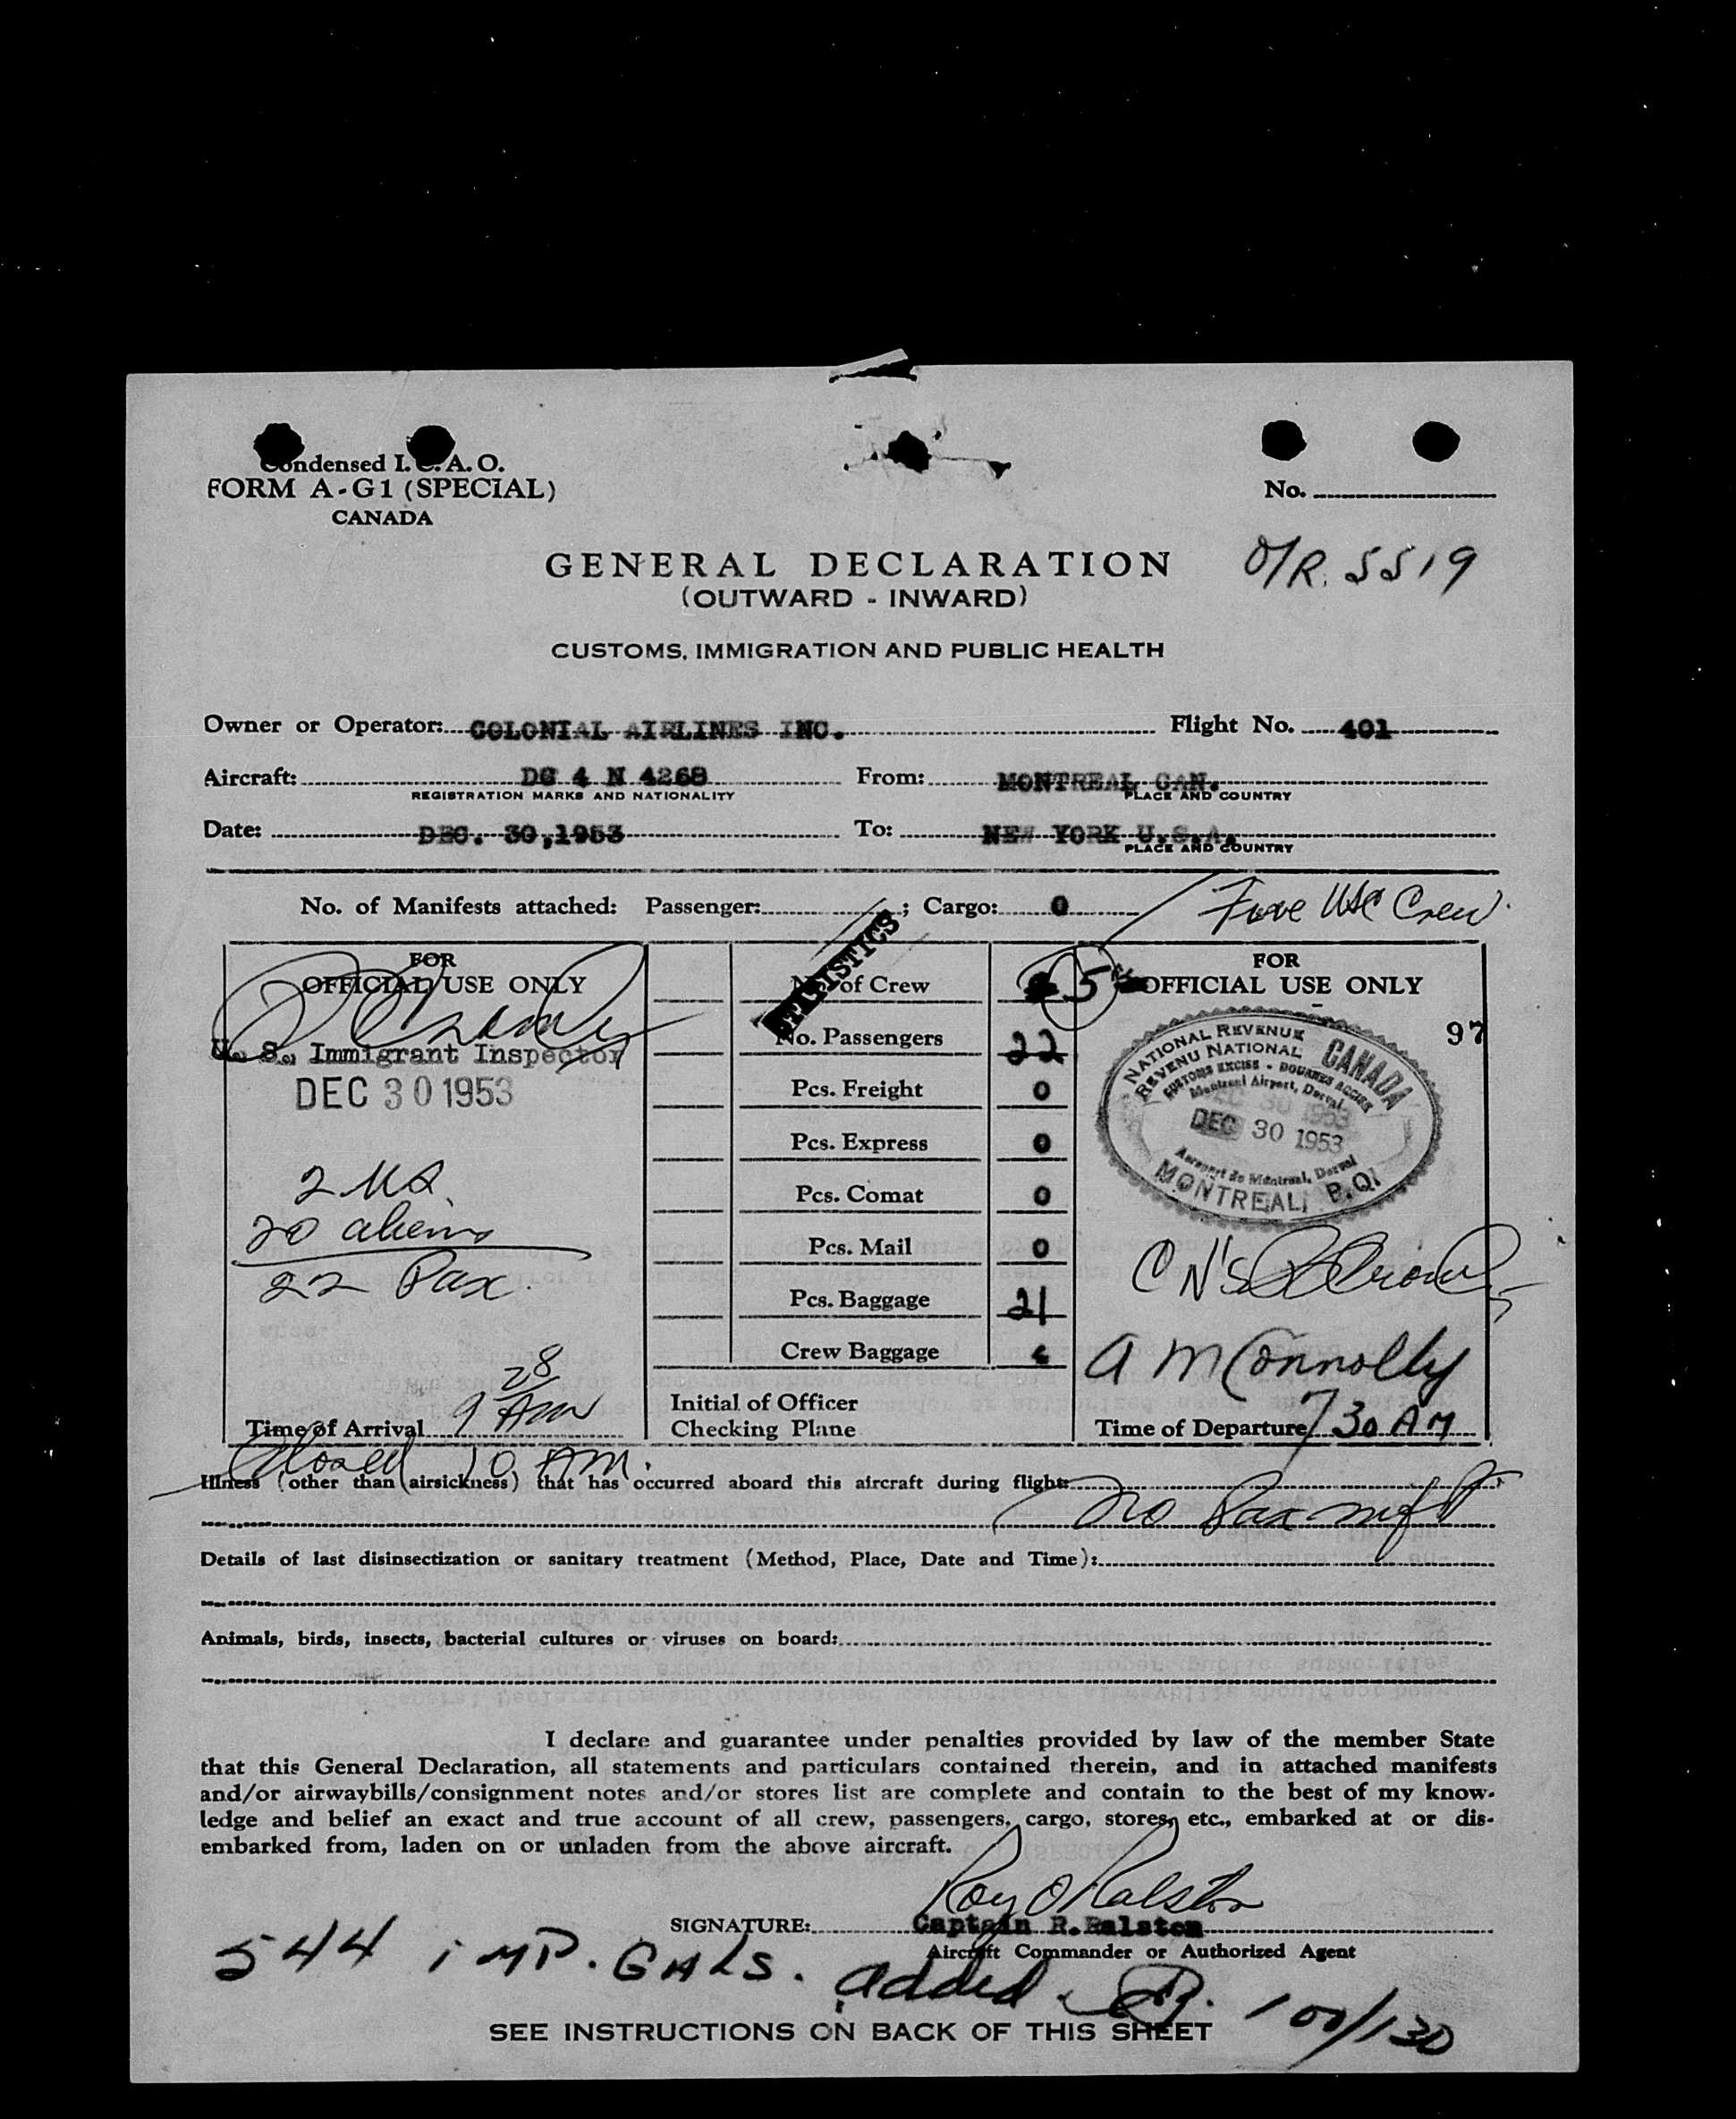 Condensed I.C.A.O.
FORM A-G1 (SPECIAL)
CANADA
No.
O/R. 5519
GENERAL DECLARATION
(OUTWARD - INWARD)
CUSTOMS, IMMIGRATION AND PUBLIC HEALTH
Owner or Operator: COLONIAL AIRLINES INC. Flight No. 401
Aircraft: DC 4 N 4268 From: MONTREAL CAN.
REGISTRATION MARKS AND NATIONALITY PLACE AND COUNTRY
Date: DEC. 30,1953 To: NEW YORK U.S.A.
PLACE AND COUNTRY
No. of Manifests attached: Passenger: ; Cargo: 0
Five USC Crew
STATISTICS
FOR
OFFICIAL USE ONLY
U. S. Immigrant Inspector
DEC 30 1953
2 US
20 aliens
22 Pax.
Time of Arrival 9 28 AM
No. of Crew 5
No. Passengers 22
Pcs. Freight 0
Pcs. Express 0
Pcs. Comat 0
Pcs. Mail 0
Pcs. Baggage 21
Crew Baggage
Initial of Officer
Checking Plane
FOR
OFFICIAL USE ONLY
97
NATIONAL REVENUE
REVENU NATIONAL
CANADA
CUSTOMS EXCISE - DOUANES ACCISE
Montreal Airport, Dorval
DEC 30 1953
Aeroport de Montreal, Dorval
MONTREAL, P.Q.
C N's
A M Connolly
Time of Departure 7 30 AM
10 AM.
Illness (other than airsickness) that has occurred aboard this aircraft during flight:
No Pax mfst
Details of last disinsectization or sanitary treatment (Method, Place, Date and Time):
Animals, birds, insects, bacterial cultures or viruses on board:
I declare and guarantee under penalties provided by law of the member State
that this General Declaration, all statements and particulars contained therein, and in attached manifests
and/or airwaybills/consignment notes and/or stores list are complete and contain to the best of my know-
ledge and belief an exact and true account of all crew, passengers, cargo, stores, etc., embarked at or dis-
embarked from, laden on or unladen from the above aircraft.
Roy O Ralston
SIGNATURE: Captain R. Ralston
Aircraft Commander or Authorized Agent
544 IMP. GALS. added. 100/130
SEE INSTRUCTIONS ON BACK OF THIS SHEET